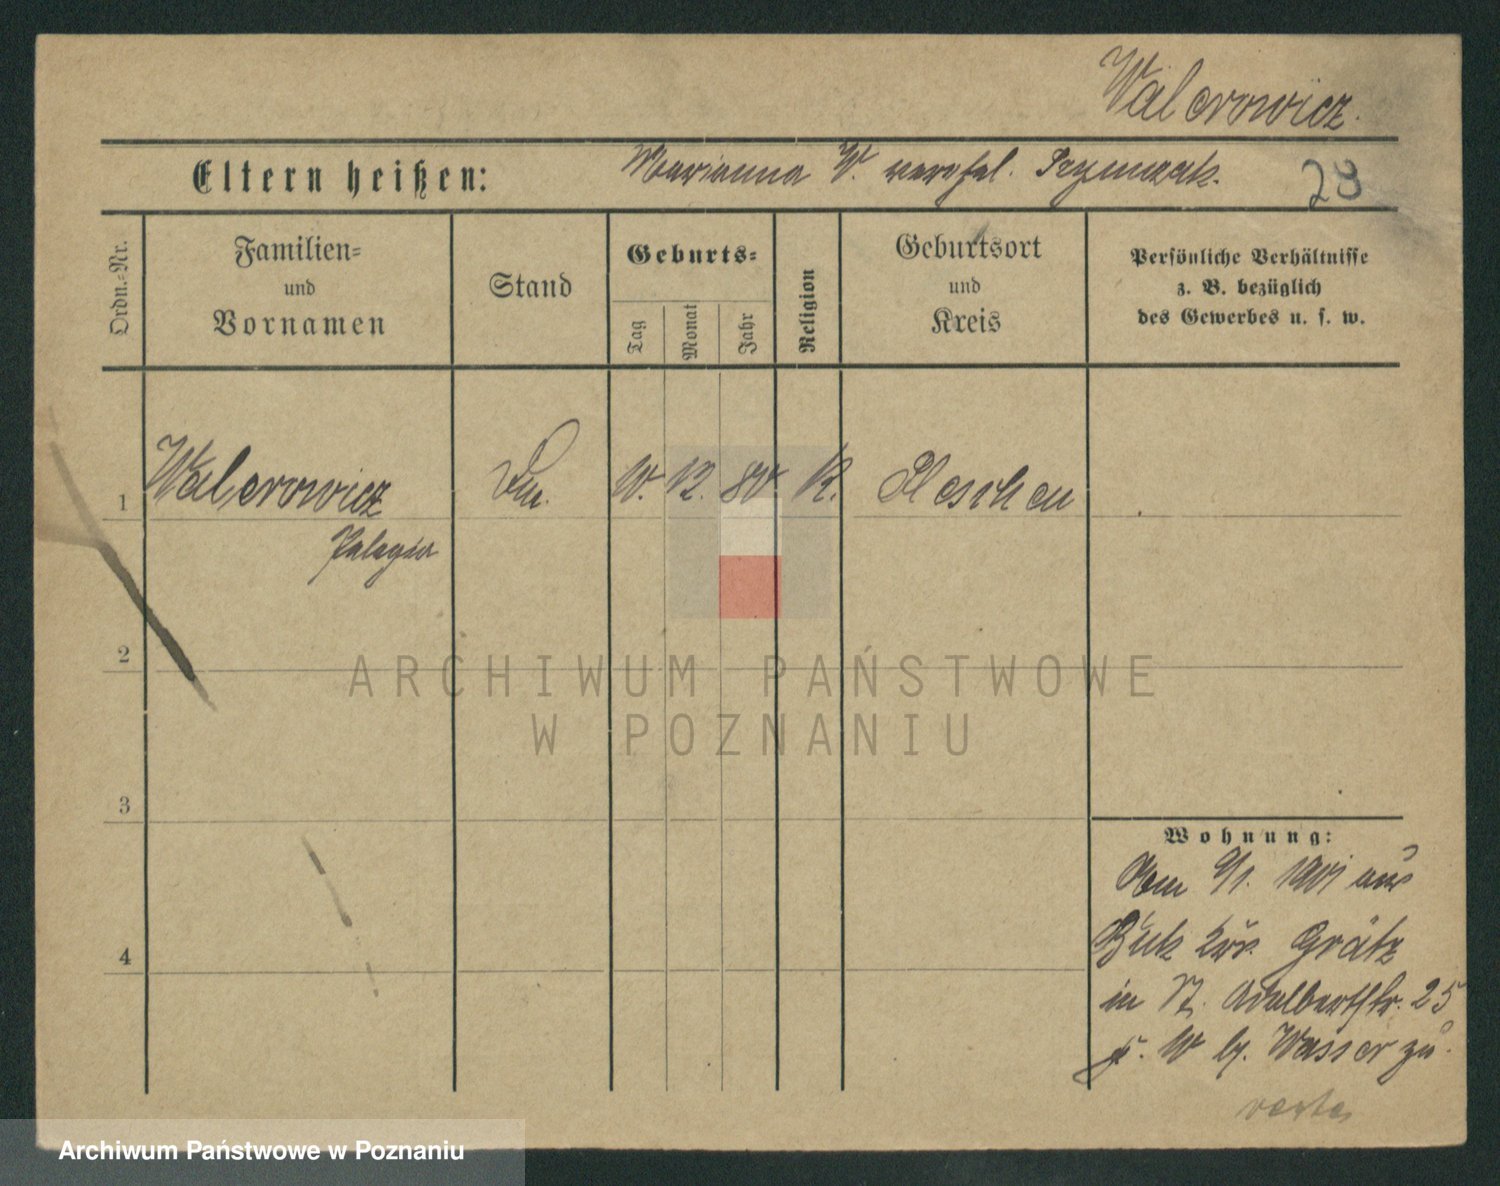 Walerowicz.
Eltern heißen: Marianna W. verehel. Szymczak.
28
Ordn.=Nr.
Familien=
und
Vornamen
Stand
Geburts=
Tag
Monat
Jahr
Religion
Geburtsort
und
Kreis
Persönliche Verhältnisse
z. B. bezüglich
des Gewerbes u. s. w.
1 Walerowicz 12. 80 K. Pleschen
Pelagia
2
3
4
Wohnung:
9/1. 1901 aus
Buk Krs. Grätz
in St. Adalbertstr. 25
b. Wasser zu.
ARCHIWUM PAŃSTWOWE
W POZNANIU
Archiwum Państwowe w Poznaniu